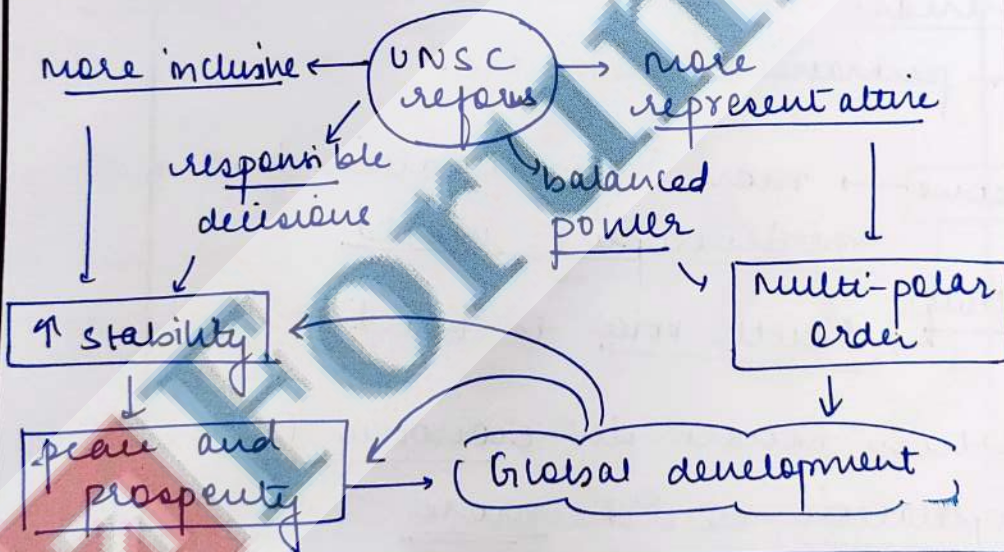 more inclusive
UNSC
reforms
more
representative
responsible
decisions
balanced
power
↑ stability
multi-polar
order
peace and
prosperity
Global development
Forum